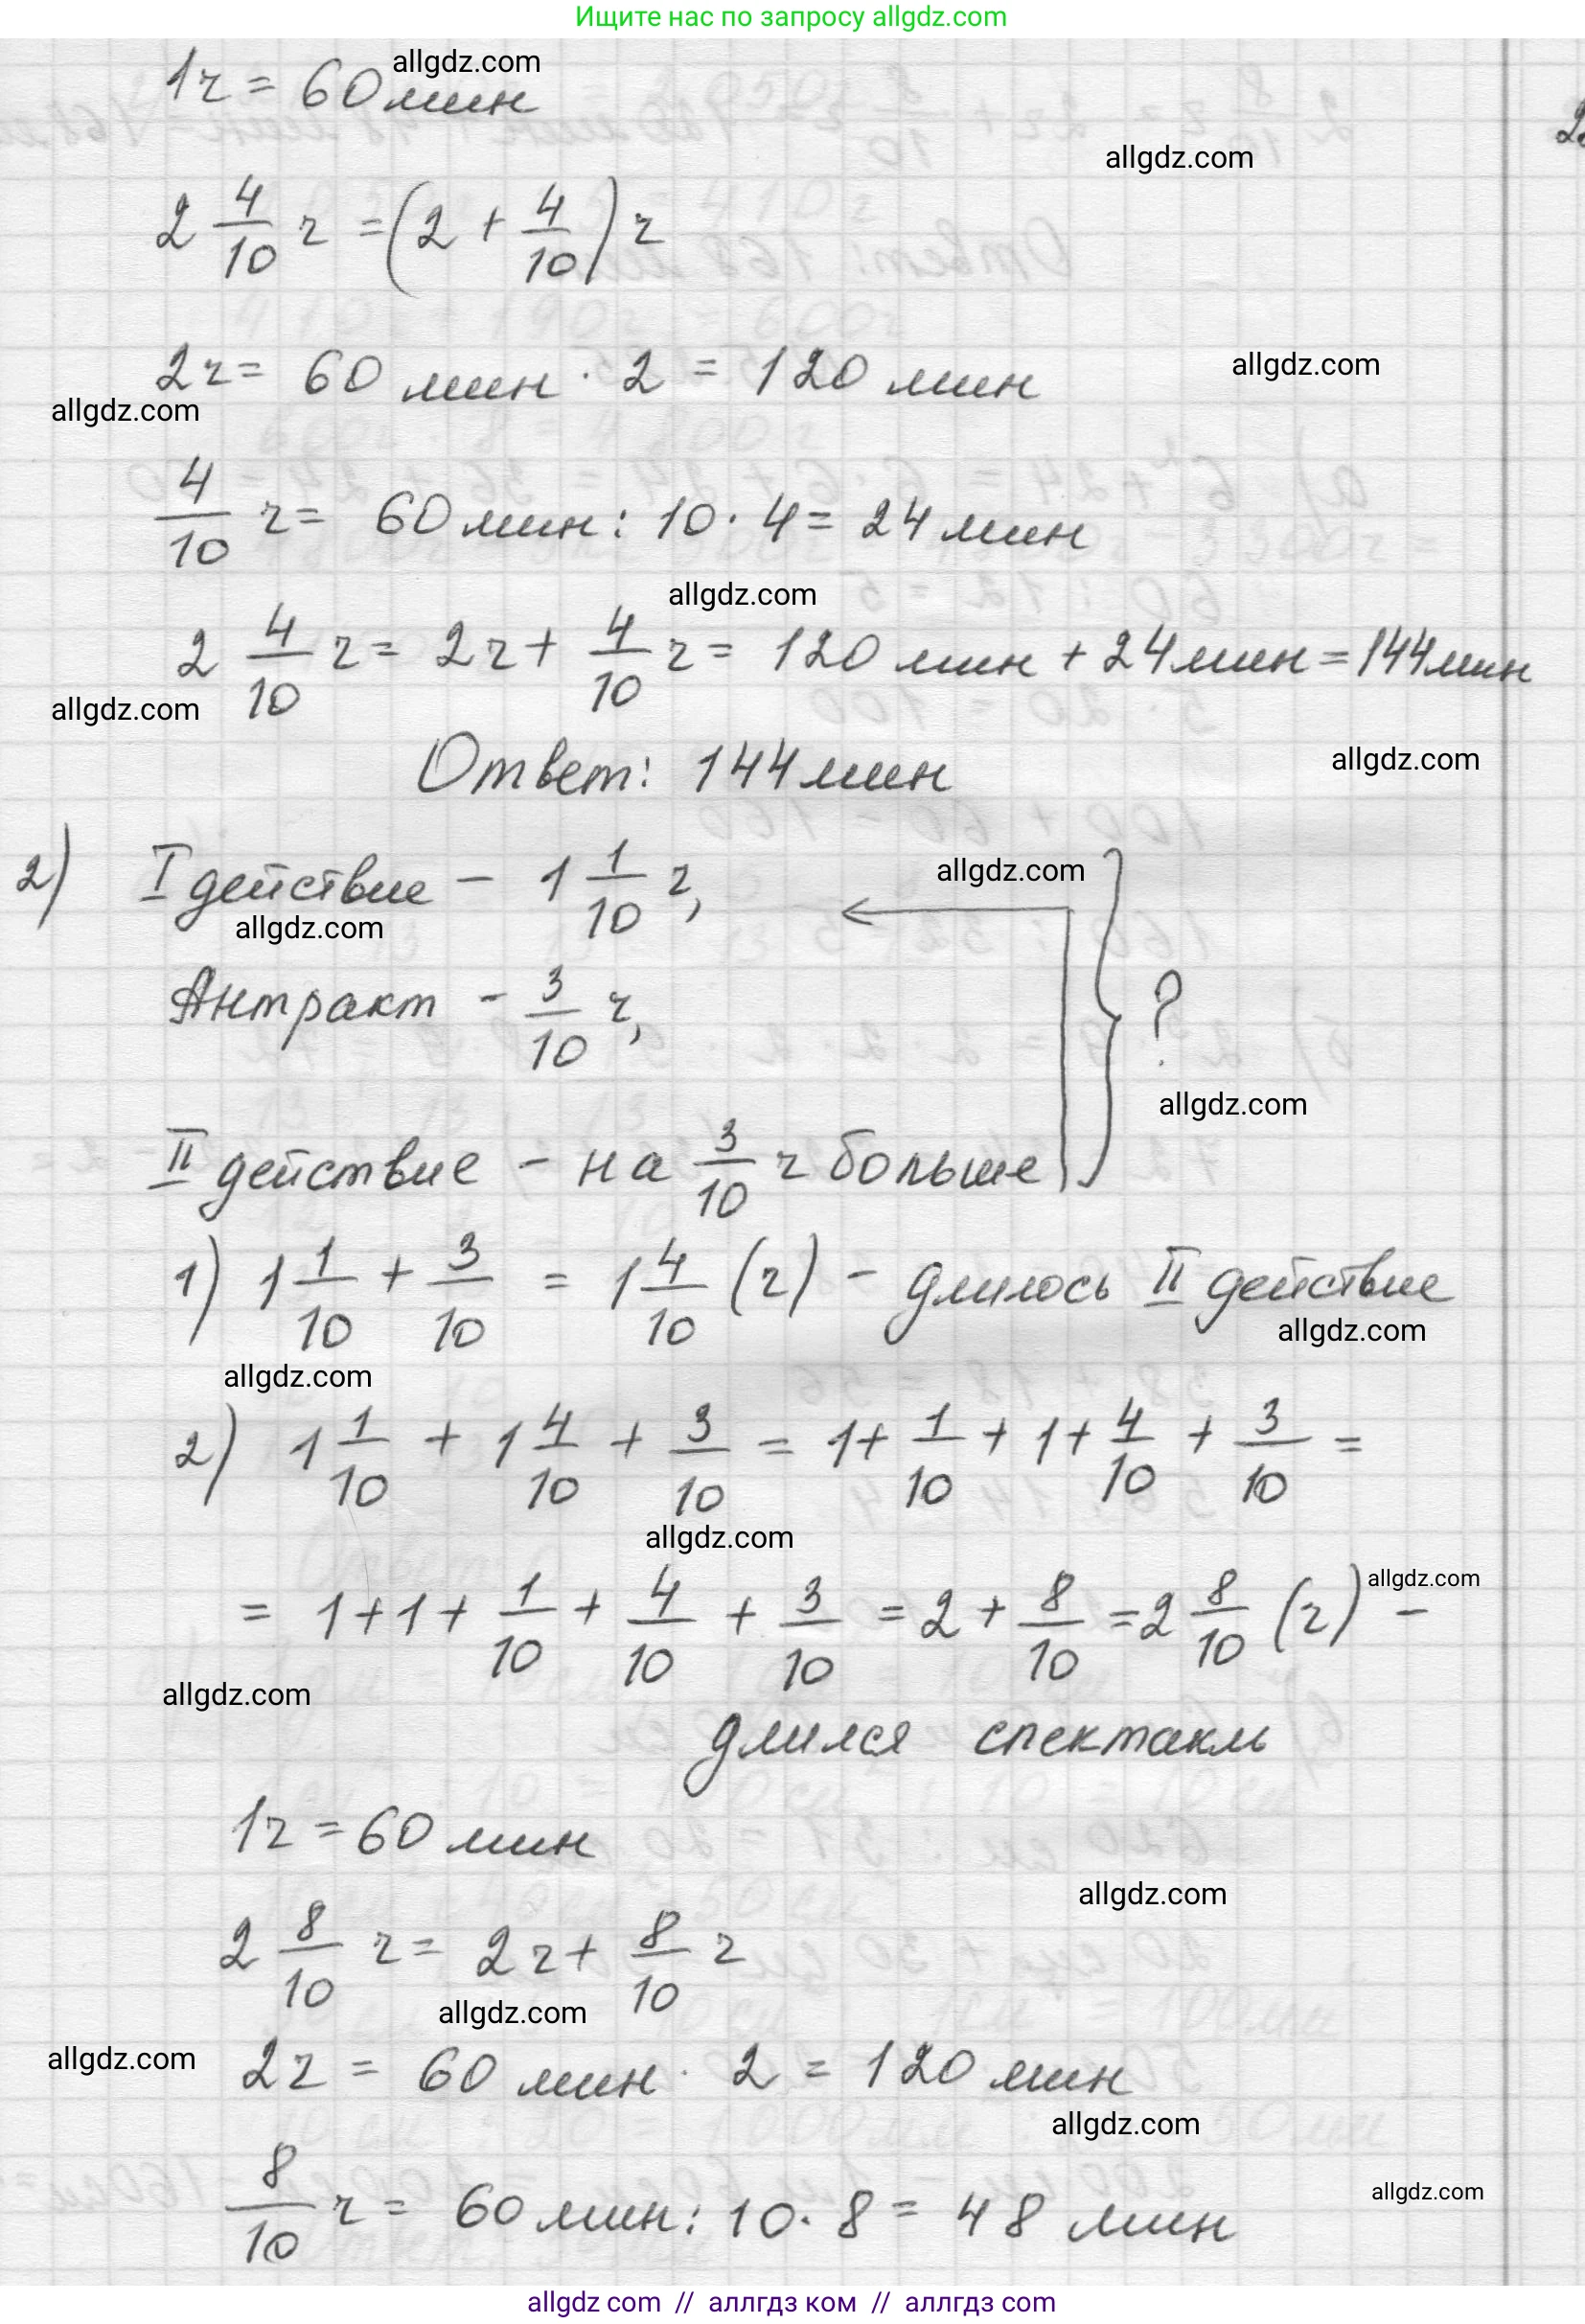 Ищите нас по запросу allgdz.com
1ч = 60 мин
allgdz.com
allgdz.com
2 4/10 ч = (2 + 4/10) ч
2ч = 60 мин · 2 = 120 мин
allgdz.com
allgdz.com
4/10 ч = 60 мин : 10 · 4 = 24 мин
allgdz.com
2 4/10 ч = 2ч + 4/10 ч = 120 мин + 24 мин = 144 мин
allgdz.com
Ответ: 144 мин
allgdz.com
2) I действие – 1 1/10 ч,
allgdz.com
allgdz.com
Антракт – 3/10 ч,
?
allgdz.com
II действие – на 3/10 ч больше
1) 1 1/10 + 3/10 = 1 4/10 (ч) – длилось II действие
allgdz.com
allgdz.com
2) 1 1/10 + 1 4/10 + 3/10 = 1 + 1/10 + 1 + 4/10 + 3/10 =
allgdz.com
= 1 + 1 + 1/10 + 4/10 + 3/10 = 2 + 8/10 = 2 8/10 (ч) –
allgdz.com
allgdz.com
длился спектакль
1ч = 60 мин
allgdz.com
2 8/10 ч = 2ч + 8/10 ч
allgdz.com
allgdz.com
2ч = 60 мин · 2 = 120 мин
allgdz.com
8/10 ч = 60 мин : 10 · 8 = 48 мин
allgdz.com
allgdz com // аллгдз ком // аллгдз com